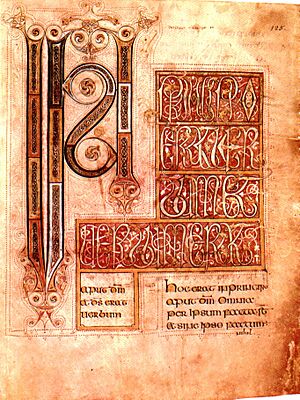 125.
INP
RINCIPIO
ERAT UER
BUM ET
UERBUM ERAT
apud dm
et ds erat
uerbum
hoc erat in princip
apud dm omnia
per ipsum facta st
et sine ipso factum